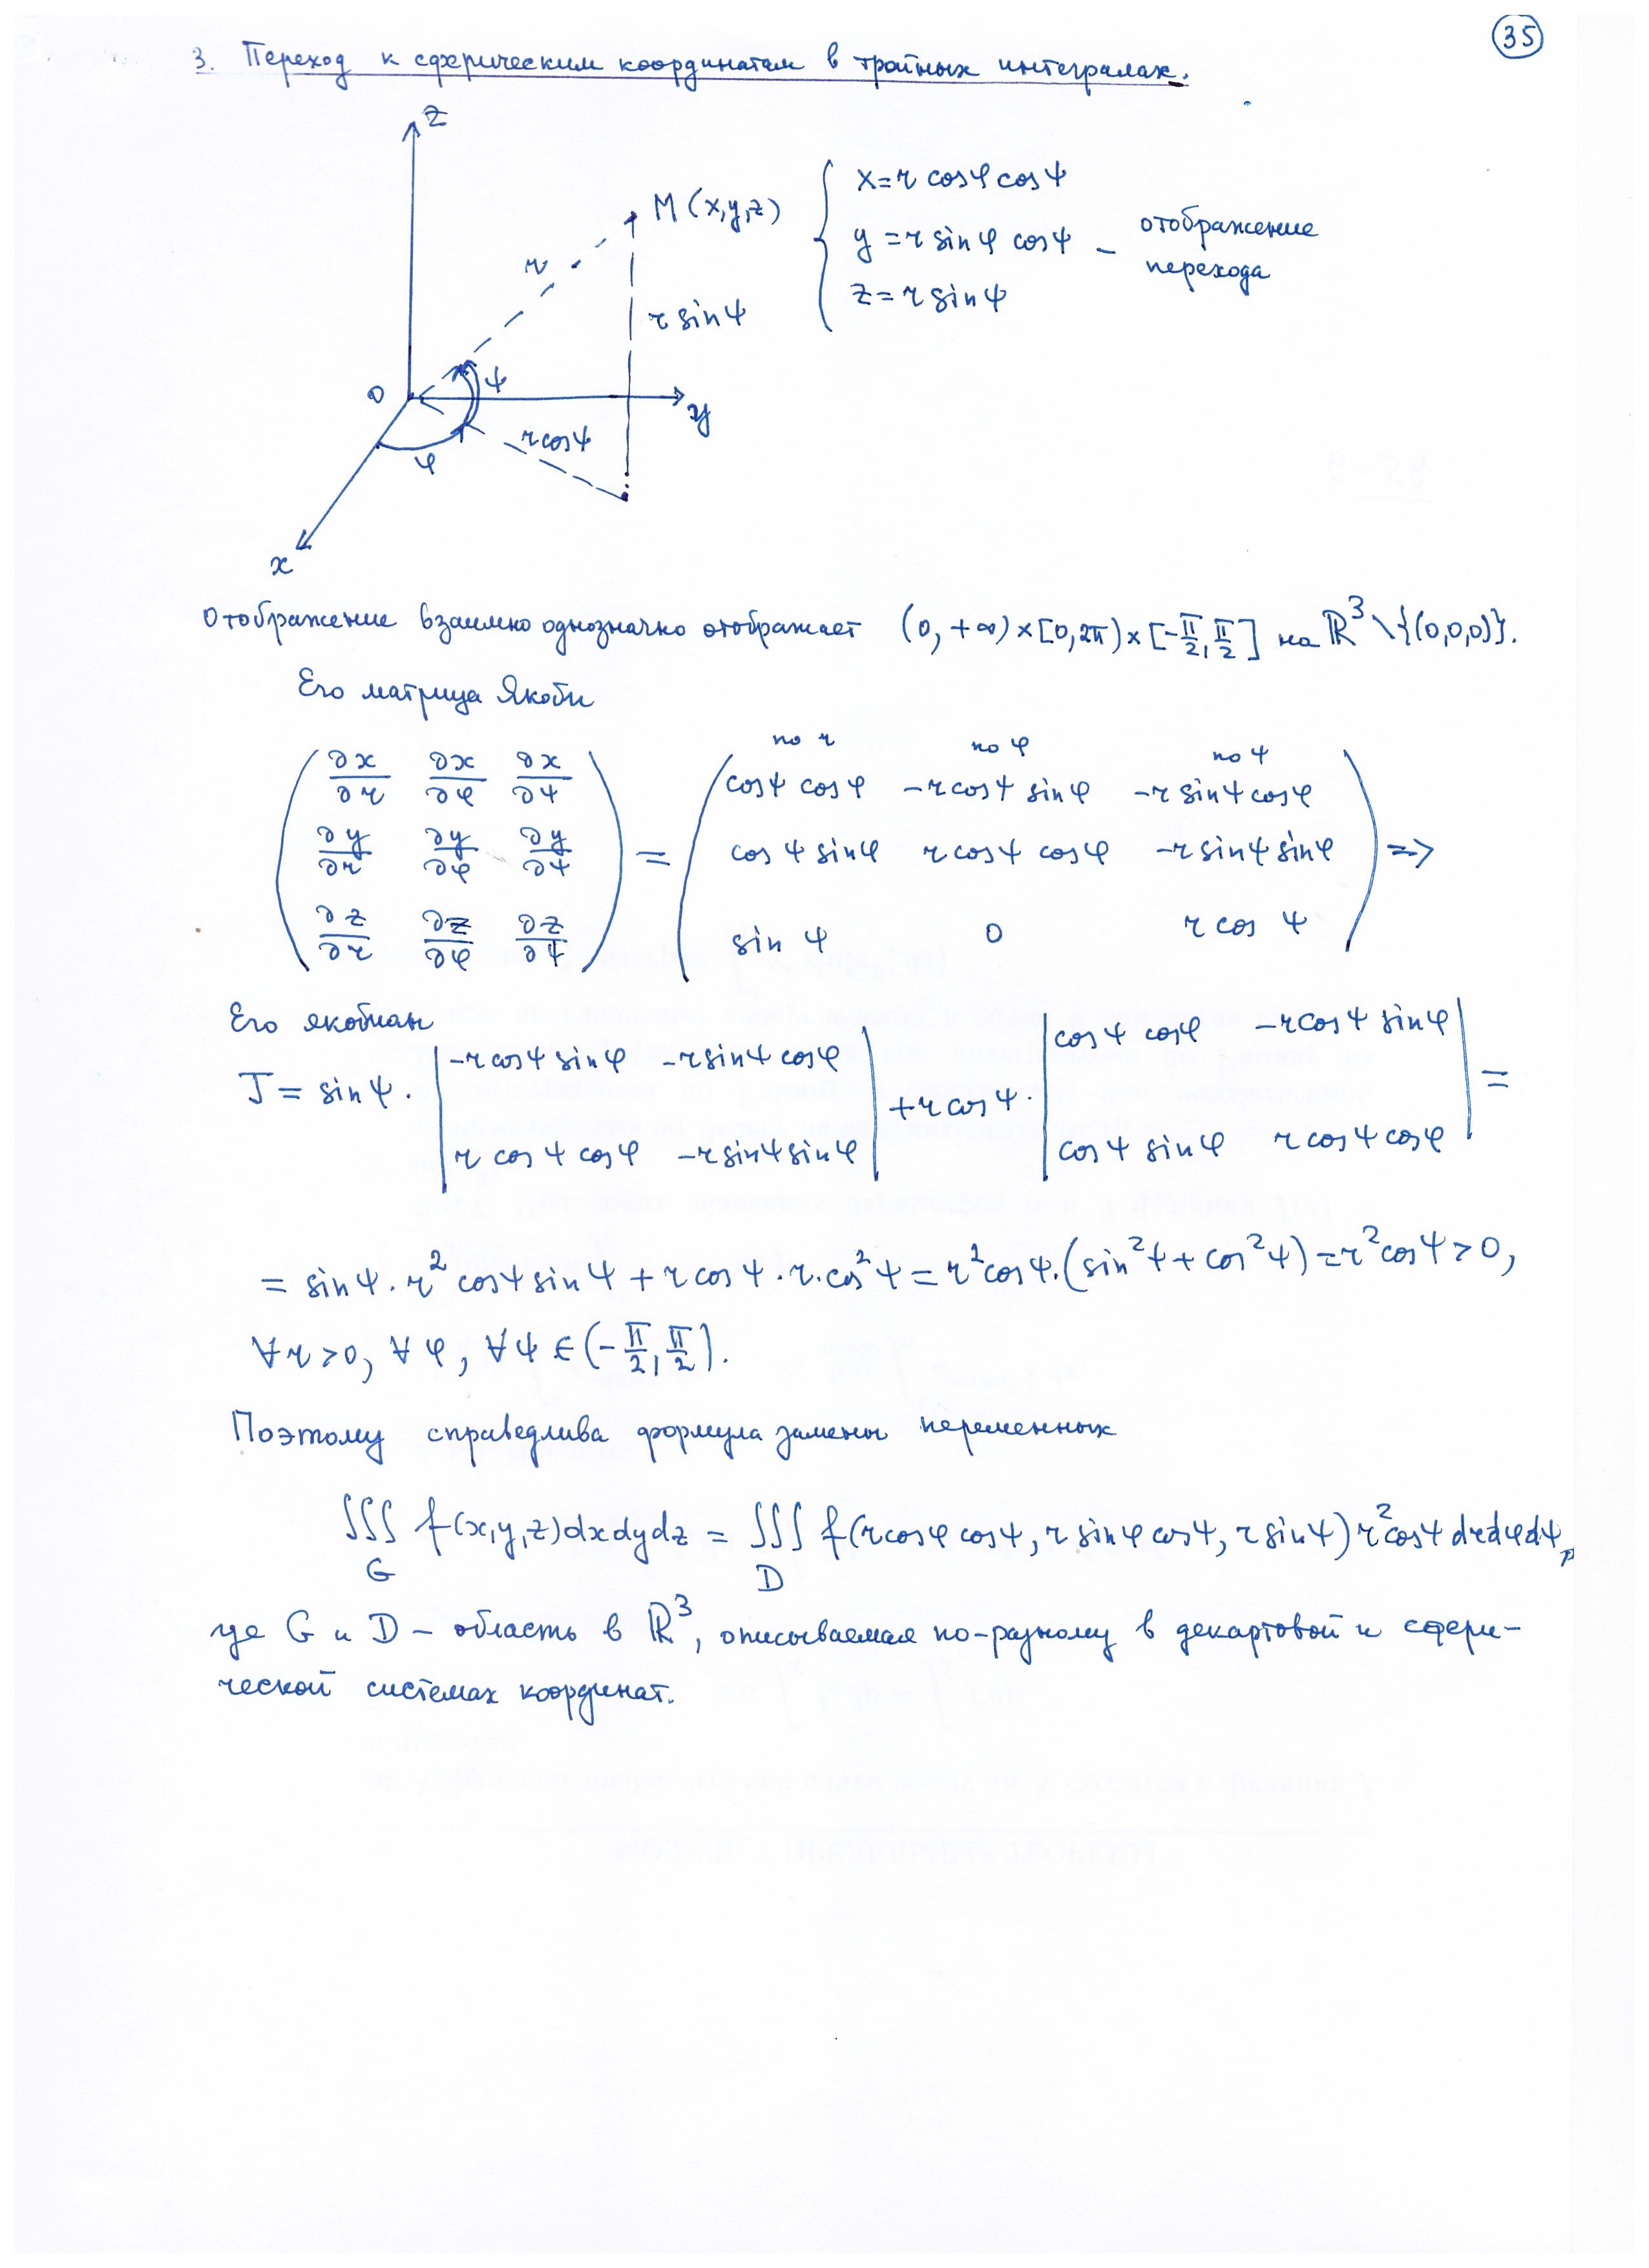 35
3. Переход к сферическим координатам в тройных интегралах.
z
M (x,y,z)
x = r cosφ cosψ
y = r sinφ cosψ – отображение перехода
z = r sinψ
r
r sinψ
ψ
0
y
r cosψ
φ
x
Отображение взаимно однозначно отображает (0, +∞)×[0, 2π)×[-π/2, π/2] на ℝ³\{(0,0,0)}.
Его матрица Якоби
по r по φ по ψ
(∂x/∂r ∂x/∂φ ∂x/∂ψ) = (cosψ cosφ -r cosψ sinφ -r sinψ cosφ)
(∂y/∂r ∂y/∂φ ∂y/∂ψ) = (cosψ sinφ r cosψ cosφ -r sinψ sinφ) =>
(∂z/∂r ∂z/∂φ ∂z/∂ψ) = (sinψ 0 r cosψ)
Его якобиан
J = sinψ · |-r cosψ sinφ -r sinψ cosφ| + r cosψ · |cosψ cosφ -r cosψ sinφ| =
|r cosψ cosφ -r sinψ sinφ| |cosψ sinφ r cosψ cosφ|
= sinψ · r² cosψ sinψ + r cosψ · r · cos²ψ = r² cosψ · (sin²ψ + cos²ψ) = r² cosψ > 0,
∀ r > 0, ∀ φ, ∀ ψ ∈ (-π/2, π/2).
Поэтому справедлива формула замены переменных
∭_G f(x,y,z) dx dy dz = ∭_D f(r cosφ cosψ, r sinφ cosψ, r sinψ) r² cosψ dr dφ dψ,
где G и D – область в ℝ³, описываемая по-разному в декартовой и сфери-
ческой системах координат.